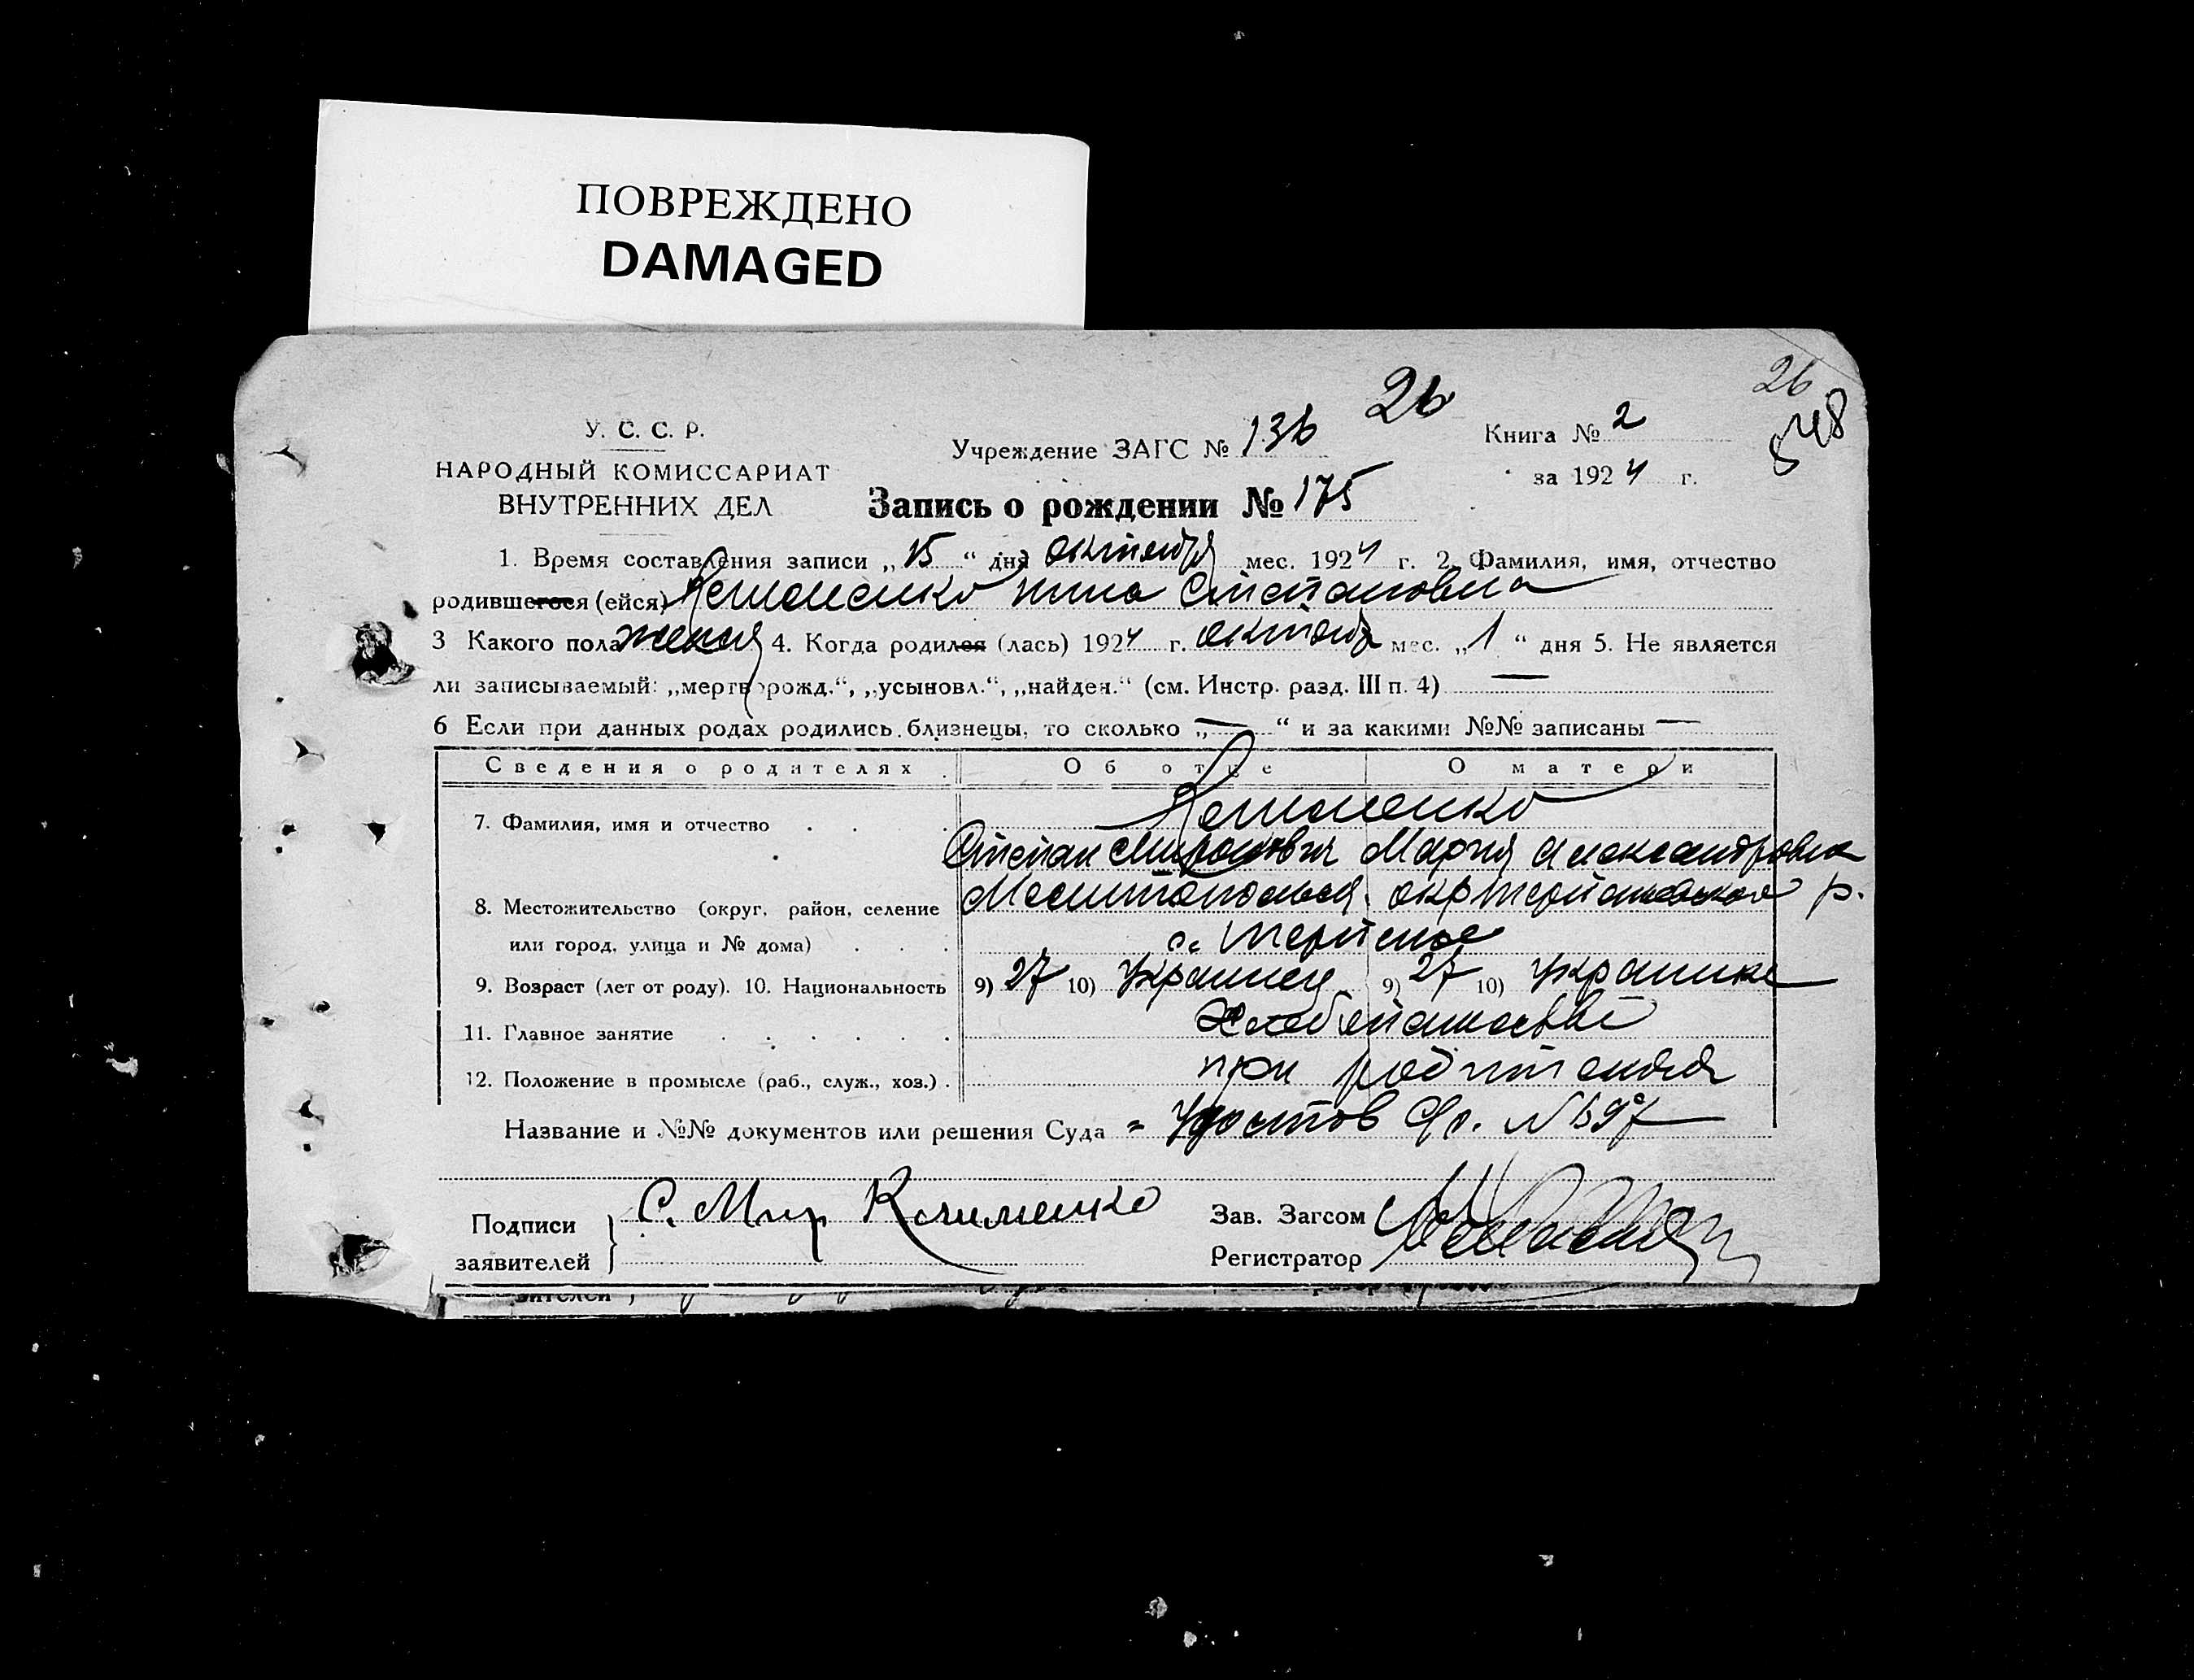 ПОВРЕЖДЕНО
DAMAGED
26
26
548
У. С. С. Р.
НАРОДНЫЙ КОМИССАРИАТ
ВНУТРЕННИХ ДЕЛ
Учреждение ЗАГС № 136
Книга № 2
за 1924 г.
Запись о рождении № 175
1. Время составления записи „15“ дня октября мес. 1924 г. 2. Фамилия, имя, отчество
родившегося (ейся) Клименко Нина Степановна
3 Какого пола женск 4. Когда родился (лась) 1924 г. октября мес. „1“ дня 5. Не является
ли записываемый: „мертворожд.“, „усыновл.“, „найден.“ (см. Инстр. разд. III п. 4) —
6 Если при данных родах родились близнецы, то сколько „—“ и за какими №№ записаны —
Сведения о родителях Об отце О матери
7. Фамилия, имя и отчество Клименко
Степан Миронович Мария Александровна
8. Местожительство (округ, район, селение Мелитопольск. окр Терпеньевского р.
или город, улица и № дома) с. Терпенье
9. Возраст (лет от роду). 10. Национальность 9) 27 10) Украинец 9) 27 10) Украинка
11. Главное занятие Хлебопашество
12. Положение в промысле (раб., служ., хоз.) при родителях
Название и №№ документов или решения Суда = Удостов №97
Подписи заявителей С. Мир Клименко
Зав. Загсом
Регистратор
вителей